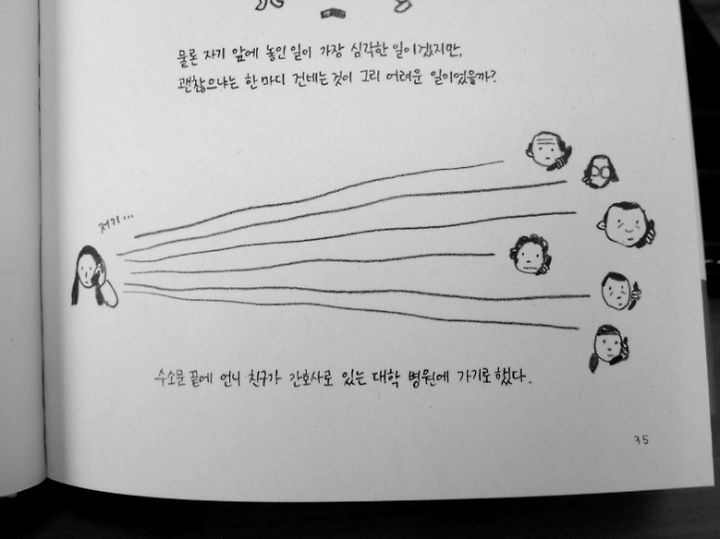 물론 자기 앞에 놓인 일이 가장 심각한 일이겠지만,
괜찮으냐는 한 마디 건네는 것이 그리 어려운 일이었을까?
저기...
수소문 끝에 언니 친구가 간호사로 있는 대학 병원에 가기로 했다.
35